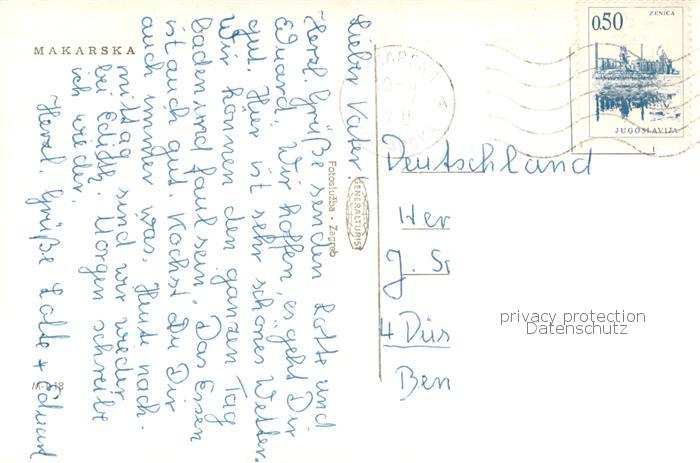 MAKARSKA
Lieber Vater!
Herzl. Grüße senden Lotte und
Eduard. Wir hoffen, es geht Dir
gut. Hier ist sehr schönes Wetter.
Wir können den ganzen Tag
baden und faul sein. Das Essen
ist auch gut. Kochst Du Dir
auch immer was. Heute nach-
mittag sind wir wieder
bei Edith. Morgen schreibe
ich wieder.
Herzl. Grüße Lotte + Eduard
Fotoslužba - Zagreb
GENERALTURIST
0.50
ZENICA
JUGOSLAVIJA
Deutschland
Her
J. Sr
4 Düs
Ben
privacy protection
Datenschutz